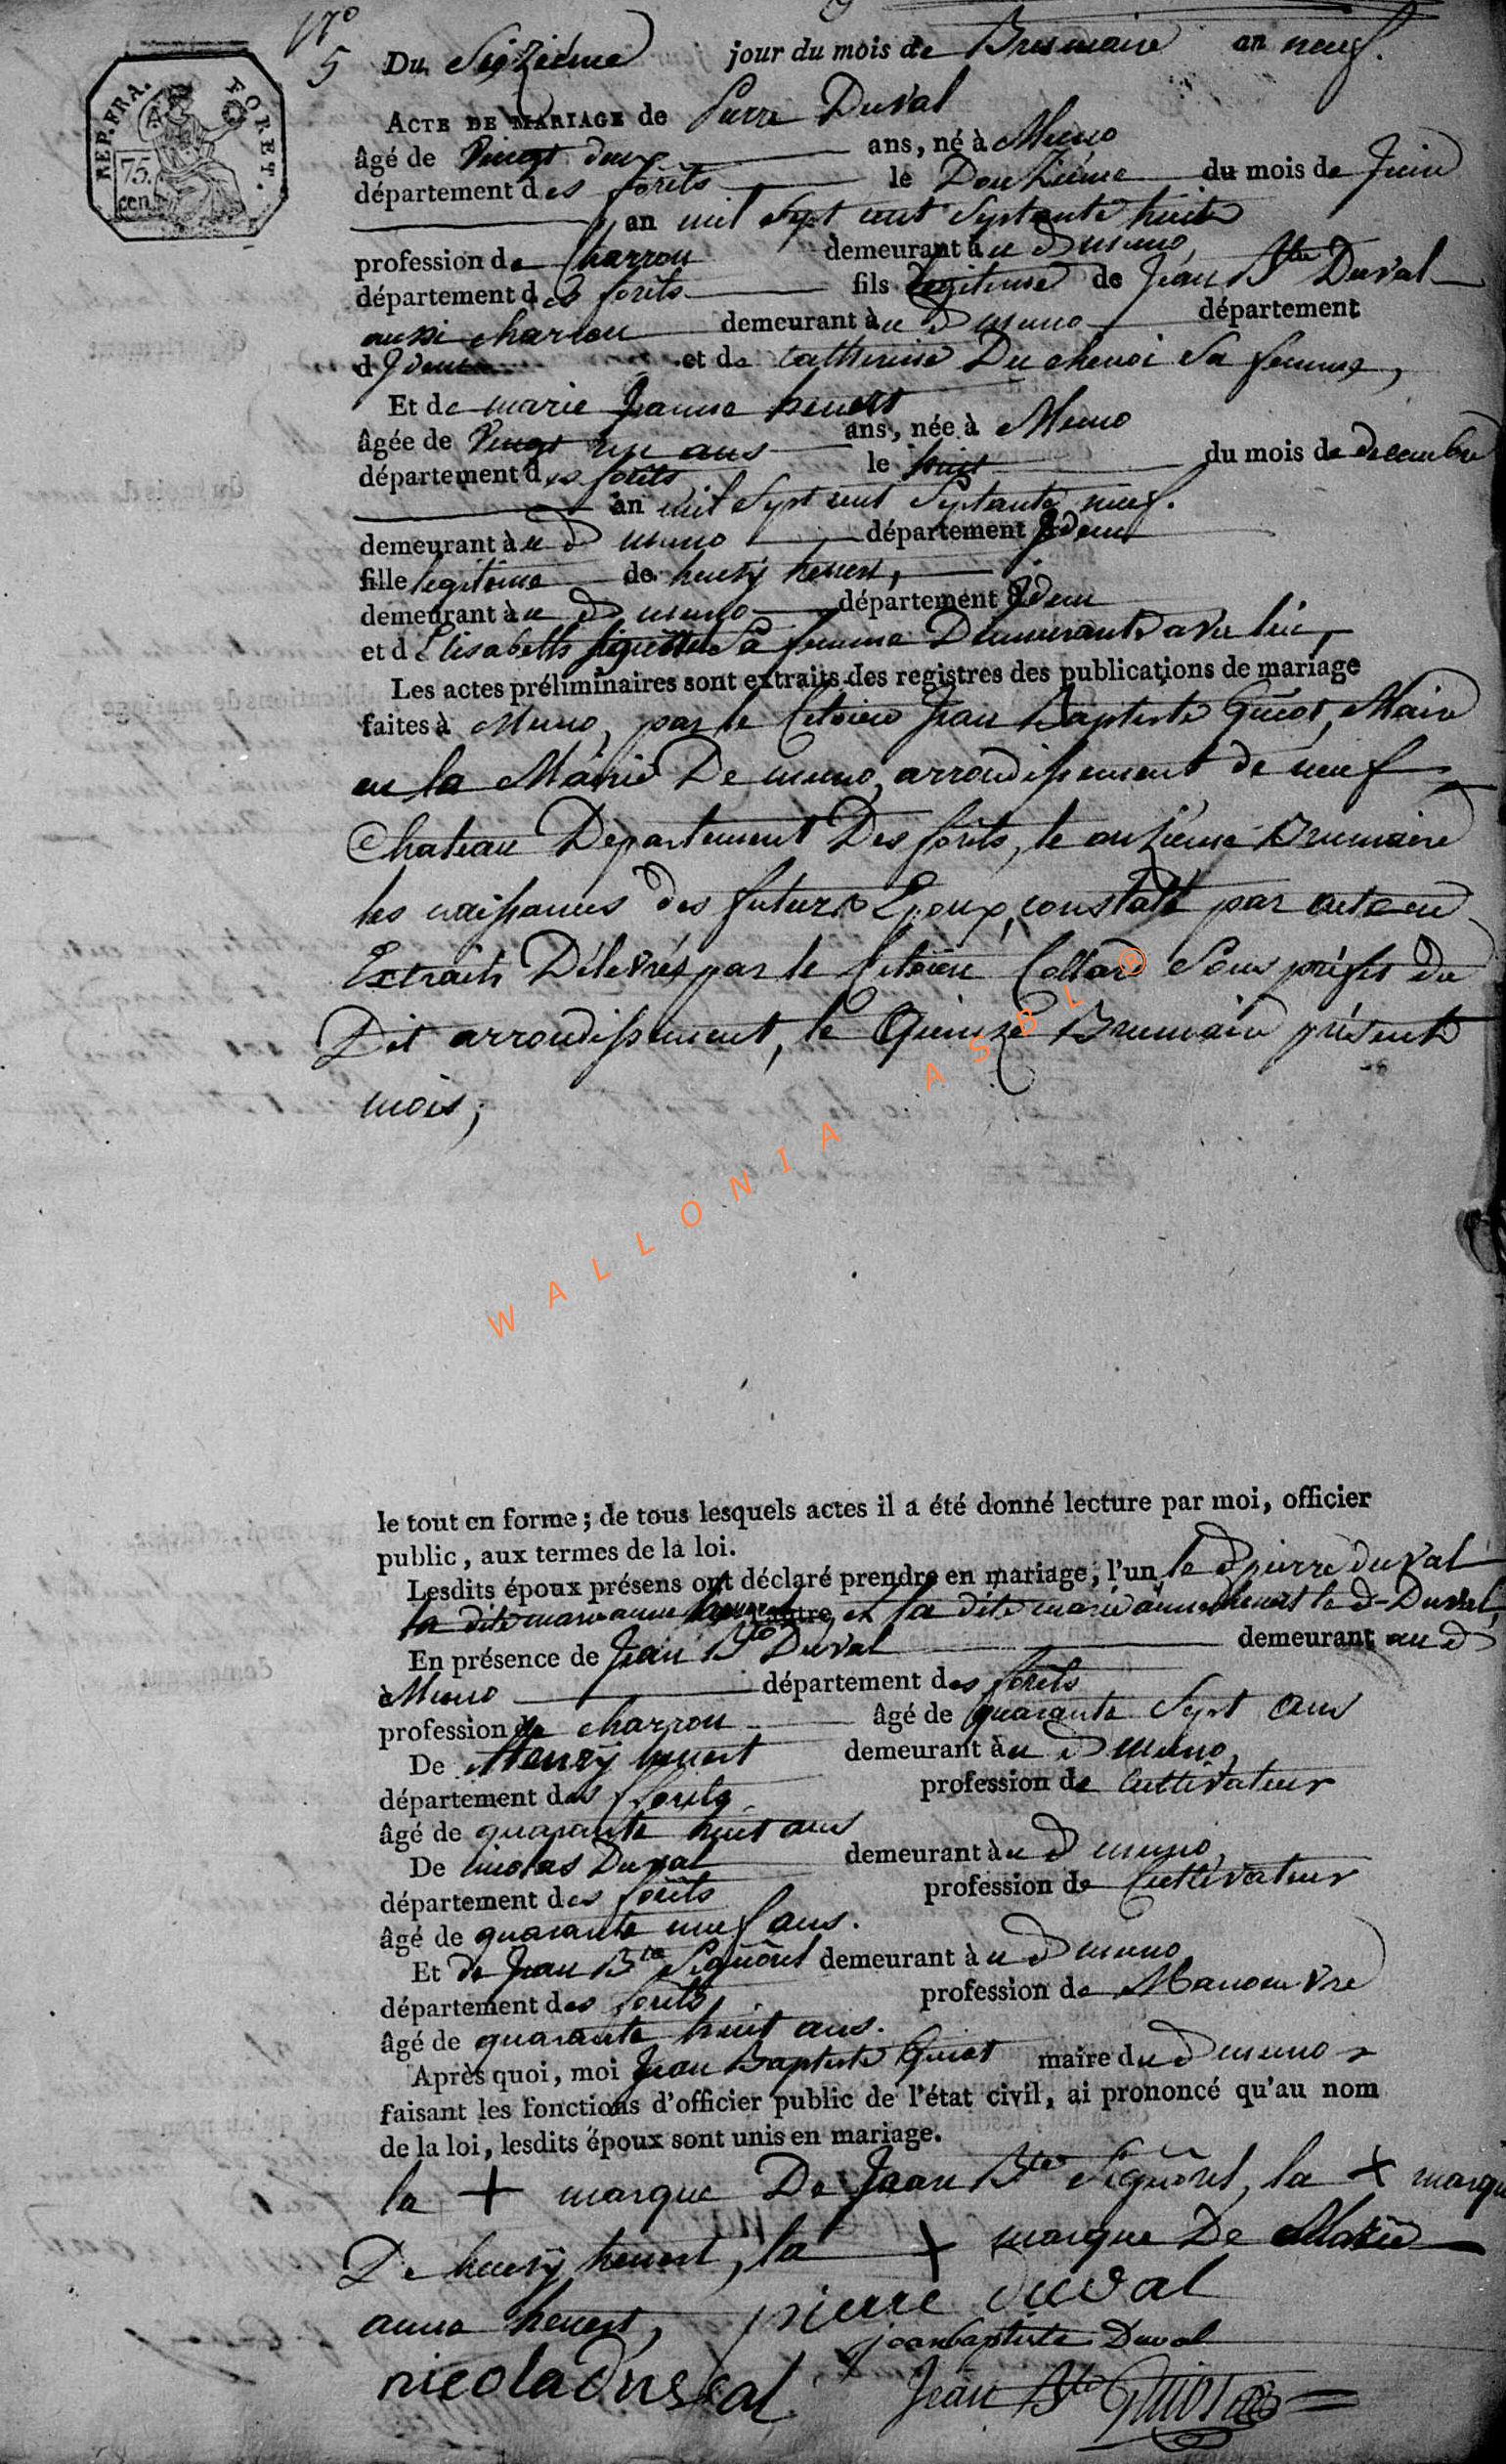 N.º
5 Du Seizième jour du mois de Brumaire an neuf.
REP. FRA. FORET.
75. cent.
ACTE DE MARIAGE de Pierre Duval
âgé de Vingt deux ans, né à Muno
département des forêts le Douzième du mois de Juin
an mil Sept cent Septante huit
profession de Charron demeurant au d muno,
département des forêts fils légitime de Jean Bte Duval
aussi charron demeurant au d muno département
d Idem et de Catherine Du chenoi Sa femme,
Et de marie Jeanne henest
âgée de Vingt un ans ans, née à Muno
département des forêts le huit du mois de decembre
an mil Sept cent Septante neuf.
demeurant au d muno département Idem
fille legitime de henrÿ henest,
demeurant au d muno département Idem
et d'Elisabeth Sa femme Demeurant avec lui,
Les actes préliminaires sont extraits des registres des publications de mariage
faites à Muno, par le Citoien Jean Baptiste Guiot, Maire
en la Mairie De muno, arrondissement de neuf
Chateau Departement Des forêts, le onzieme Brumaire
les naissances des futurs Epoux, constaté par acte en
Extraits Délivrés par le Citoien Collard Sous préfet du
Dit arrondissement, le Quinze Brumaire présent
mois;
WALLONIA ASBL ®
le tout en forme ; de tous lesquels actes il a été donné lecture par moi, officier
public, aux termes de la loi.
Lesdits époux présens ont déclaré prendre en mariage, l'un le d pierre duval
la dite marie anne henest l'autre, et la dite marie anne henest le d-Duval,
En présence de Jean Bte Duval demeurant au d
à Muno département des forêts
profession de charron âgé de quarante Sept ans
De Henrÿ henest demeurant au d muno,
département des forêts profession de Cultivateur
âgé de quarante huit ans
De nicolas Duval demeurant au d muno,
département des forêts profession de Cultivateur
âgé de quarante neuf ans.
Et de Jean Bte demeurant au d muno
département des forêts, profession de Manoeuvre
âgé de quarante huit ans.
Après quoi, moi Jean Baptiste Guiot maire du d muno
faisant les fonctions d'officier public de l'état civil, ai prononcé qu'au nom
de la loi, lesdits époux sont unis en mariage.
la + marque De Jean Bte la + marque
De henrÿ henest, la + marque De Marie
anne henest, pierre duval
jean baptiste Duval
nicola duval Jean Bte Guiot